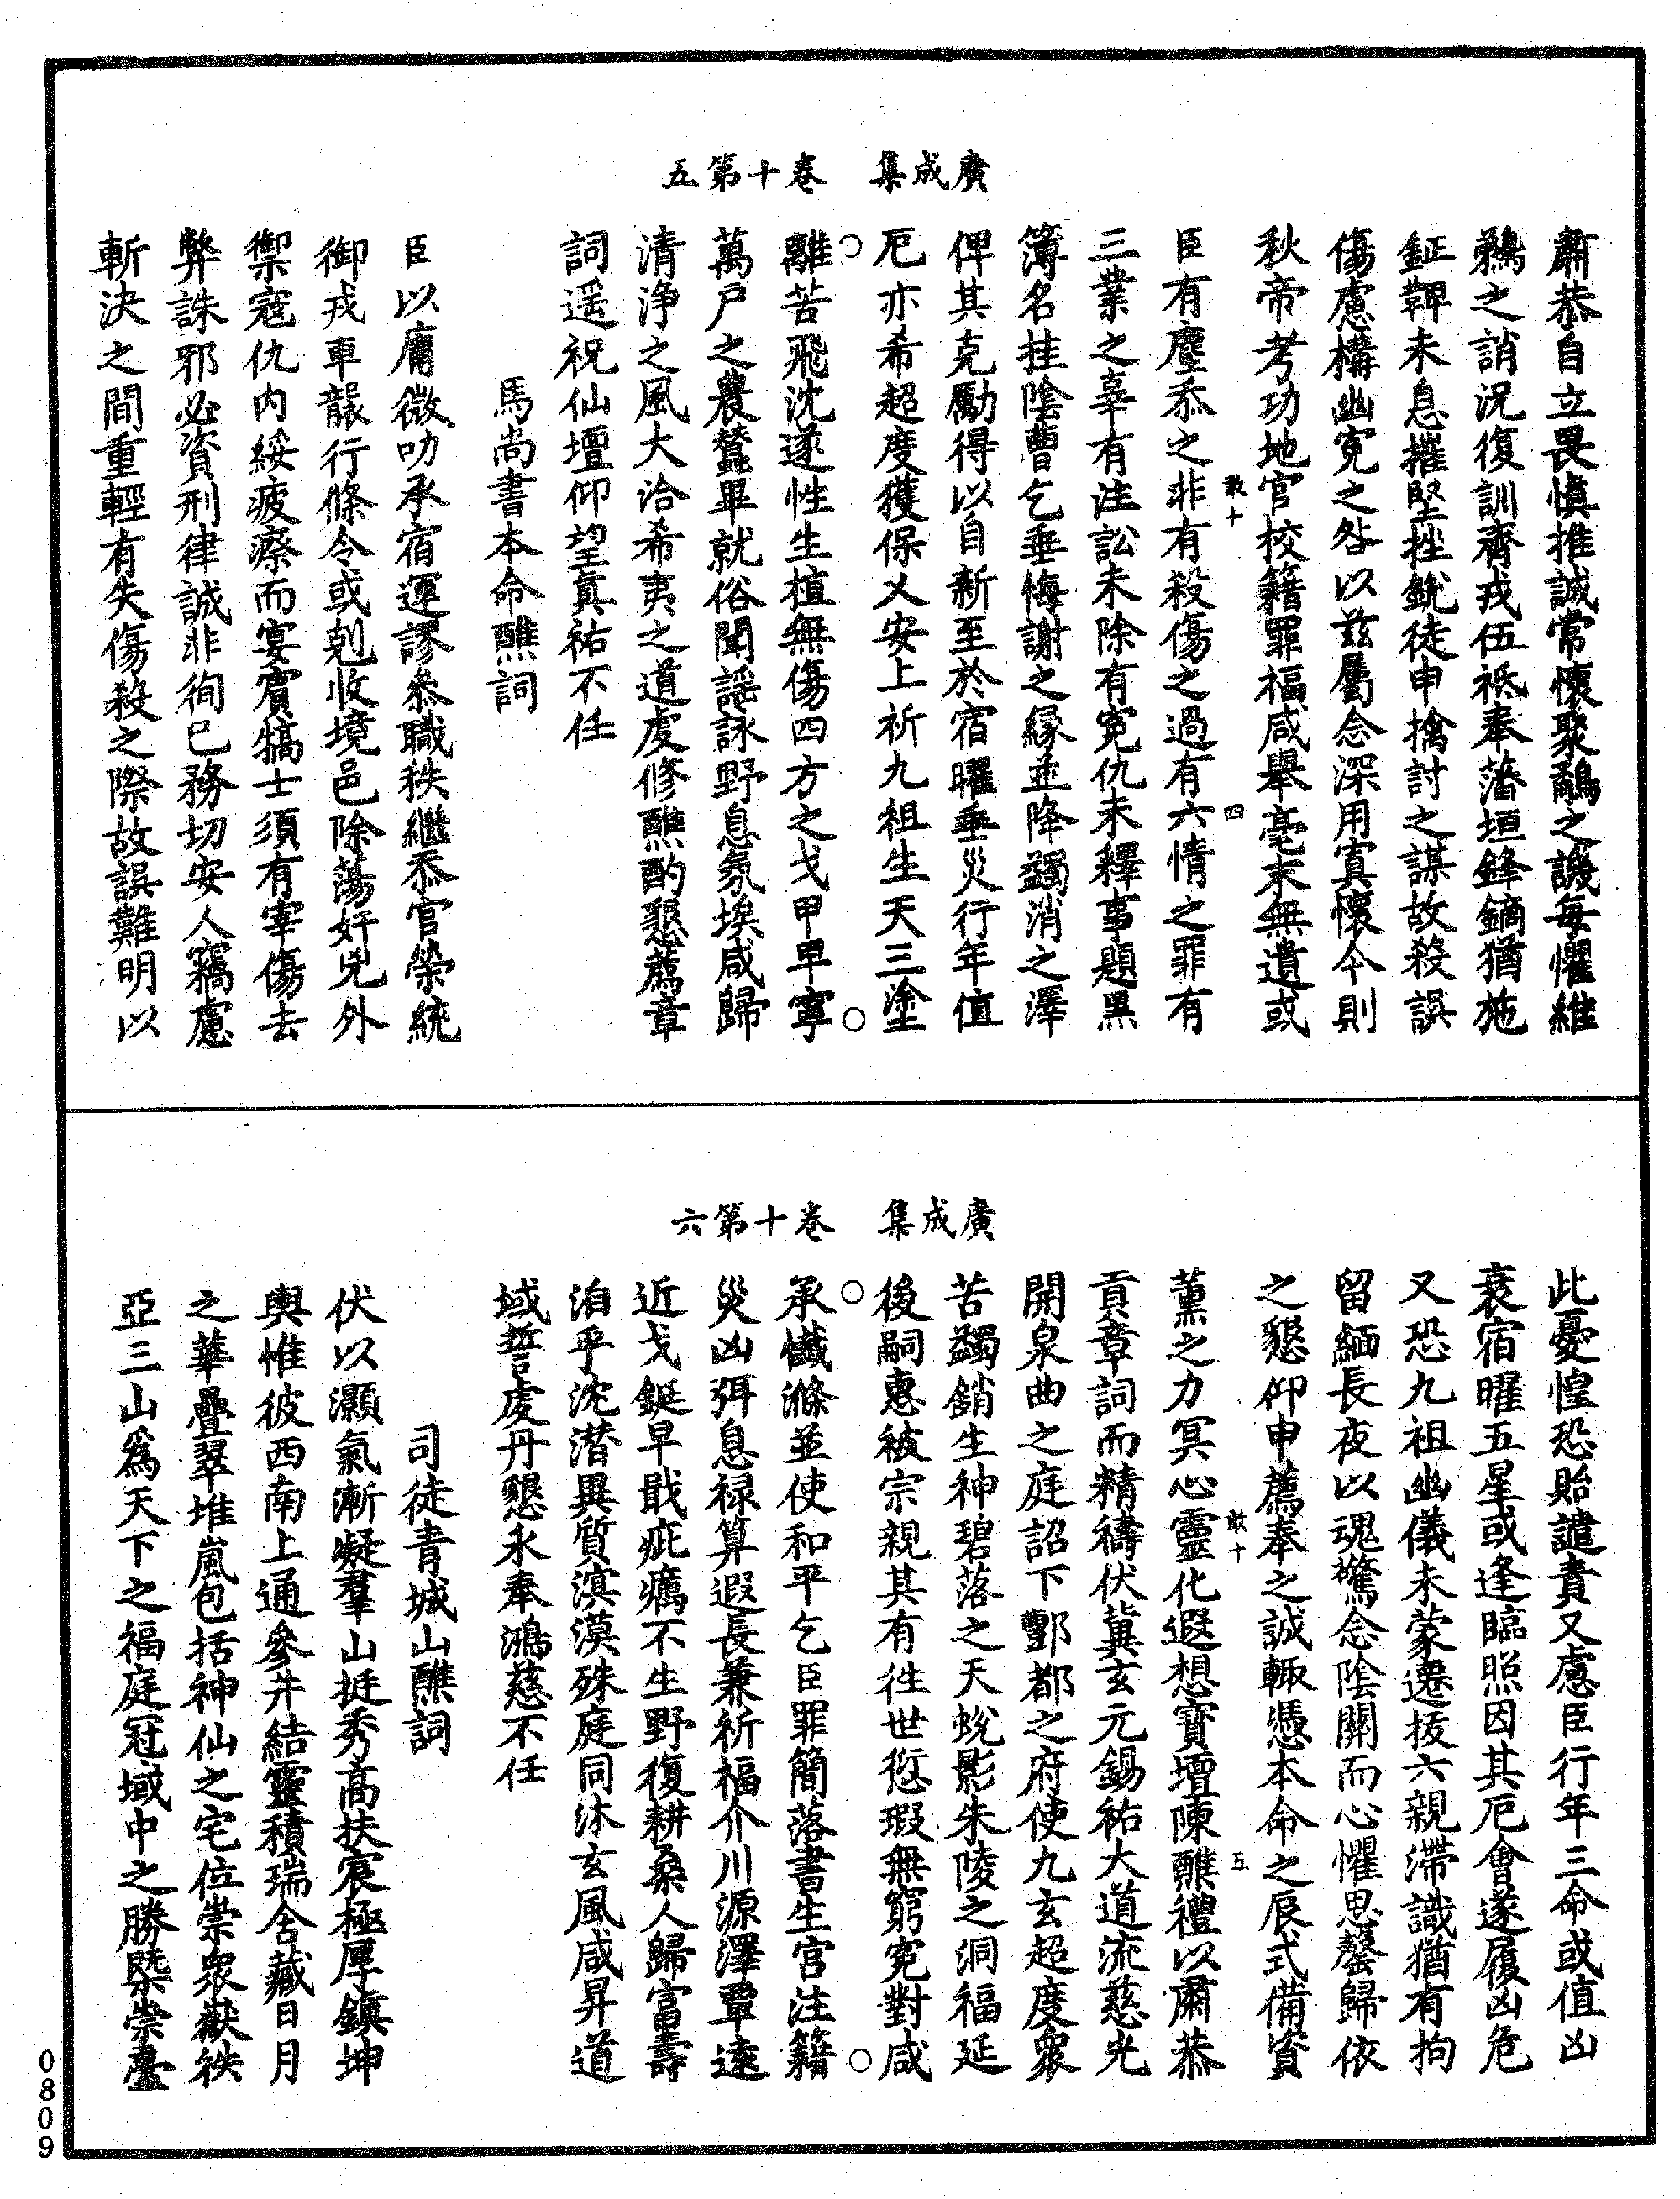 廣成集　卷十第五
肅恭自立畏慎推誠常懷聚鷸之譏每懼維
鵜之誚況復訓齊戎伍祇奉藩垣鋒鏑猶施
鉦鼙未息摧堅挫銳徒申擒討之謀故殺誤
傷慮構幽冤之咎以茲屬念深用寘懷今則
秋帝考功地官校籍罪福咸舉毫末無遺或
敢十　四
臣有塵忝之非有殺傷之過有六情之罪有
三業之辜有注訟未除有冤仇未釋事題黑
簿名挂陰曹乞垂悔謝之緣並降蠲消之澤
俾其克勵得以自新至於宿曜垂災行年值
厄亦希超度獲保乂安上祈九祖生天三塗
離苦飛沈遂性生植無傷四方之戈甲早寧
萬戶之農蠶畢就俗聞謠詠野息氛埃咸歸
清淨之風大洽希夷之道虔修醮酌懇薦章
詞遥祝仙壇仰望真祐不任
馬尚書本命醮詞
臣以庸微叨承宿運謬參職秩繼忝官榮統
御戎車龔行條令或剋收境邑除蕩奸兇外
禦寇仇內綏疲瘵而宴賓犒士須有宰傷去
弊誅邪必資刑律誠非徇己務切安人竊慮
斬決之間重輕有失傷殺之際故誤難明以
廣成集　卷十第六
此憂惶恐貽譴責又慮臣行年三命或值凶
衰宿曜五星或逢臨照因其厄會遂履凶危
又恐九祖幽儀未蒙遷拔六親滯識猶有拘
留緬長夜以魂驚念陰關而心懼思罄歸依
之懇仰申薦奉之誠輒憑本命之辰式備資
敢十　五
薰之力冥心靈化遐想寶壇陳醮禮以肅恭
貢章詞而精禱伏冀玄元錫祐大道流慈光
開泉曲之庭詔下酆都之府使九玄超度眾
苦蠲銷生神碧落之天蛻影朱陵之洞福延
後嗣惠被宗親其有往世愆瑕無窮冤對咸
承懺滌並使和平乞臣罪簡落書生宮注籍
災凶弭息祿算遐長兼祈福介川源澤覃遠
近戈鋋早戢疵癘不生野復耕桑人歸富壽
洎乎沈潛異質溟漠殊庭同沐玄風咸昇道
域誓虔丹懇永奉鴻慈不任
司徒青城山醮詞
伏以灝氣漸凝羣山挺秀高扶宸極厚鎮坤
輿惟彼西南上通參井結靈積瑞含藏日月
之華疊翠堆嵐包括神仙之宅位崇眾嶽秩
亞三山為天下之福庭冠域中之勝槩崇臺
0809